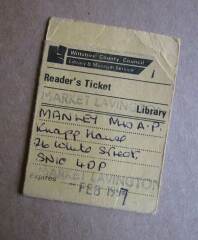 Wiltshire County Council
Library & Museum Service
Reader's Ticket
MARKET LAVINGTON
Library
MANLEY M A.P.
Knapp House
26 White Street,
SN10 4DP
MARKET LAVINGTON
expires
FEB 1997